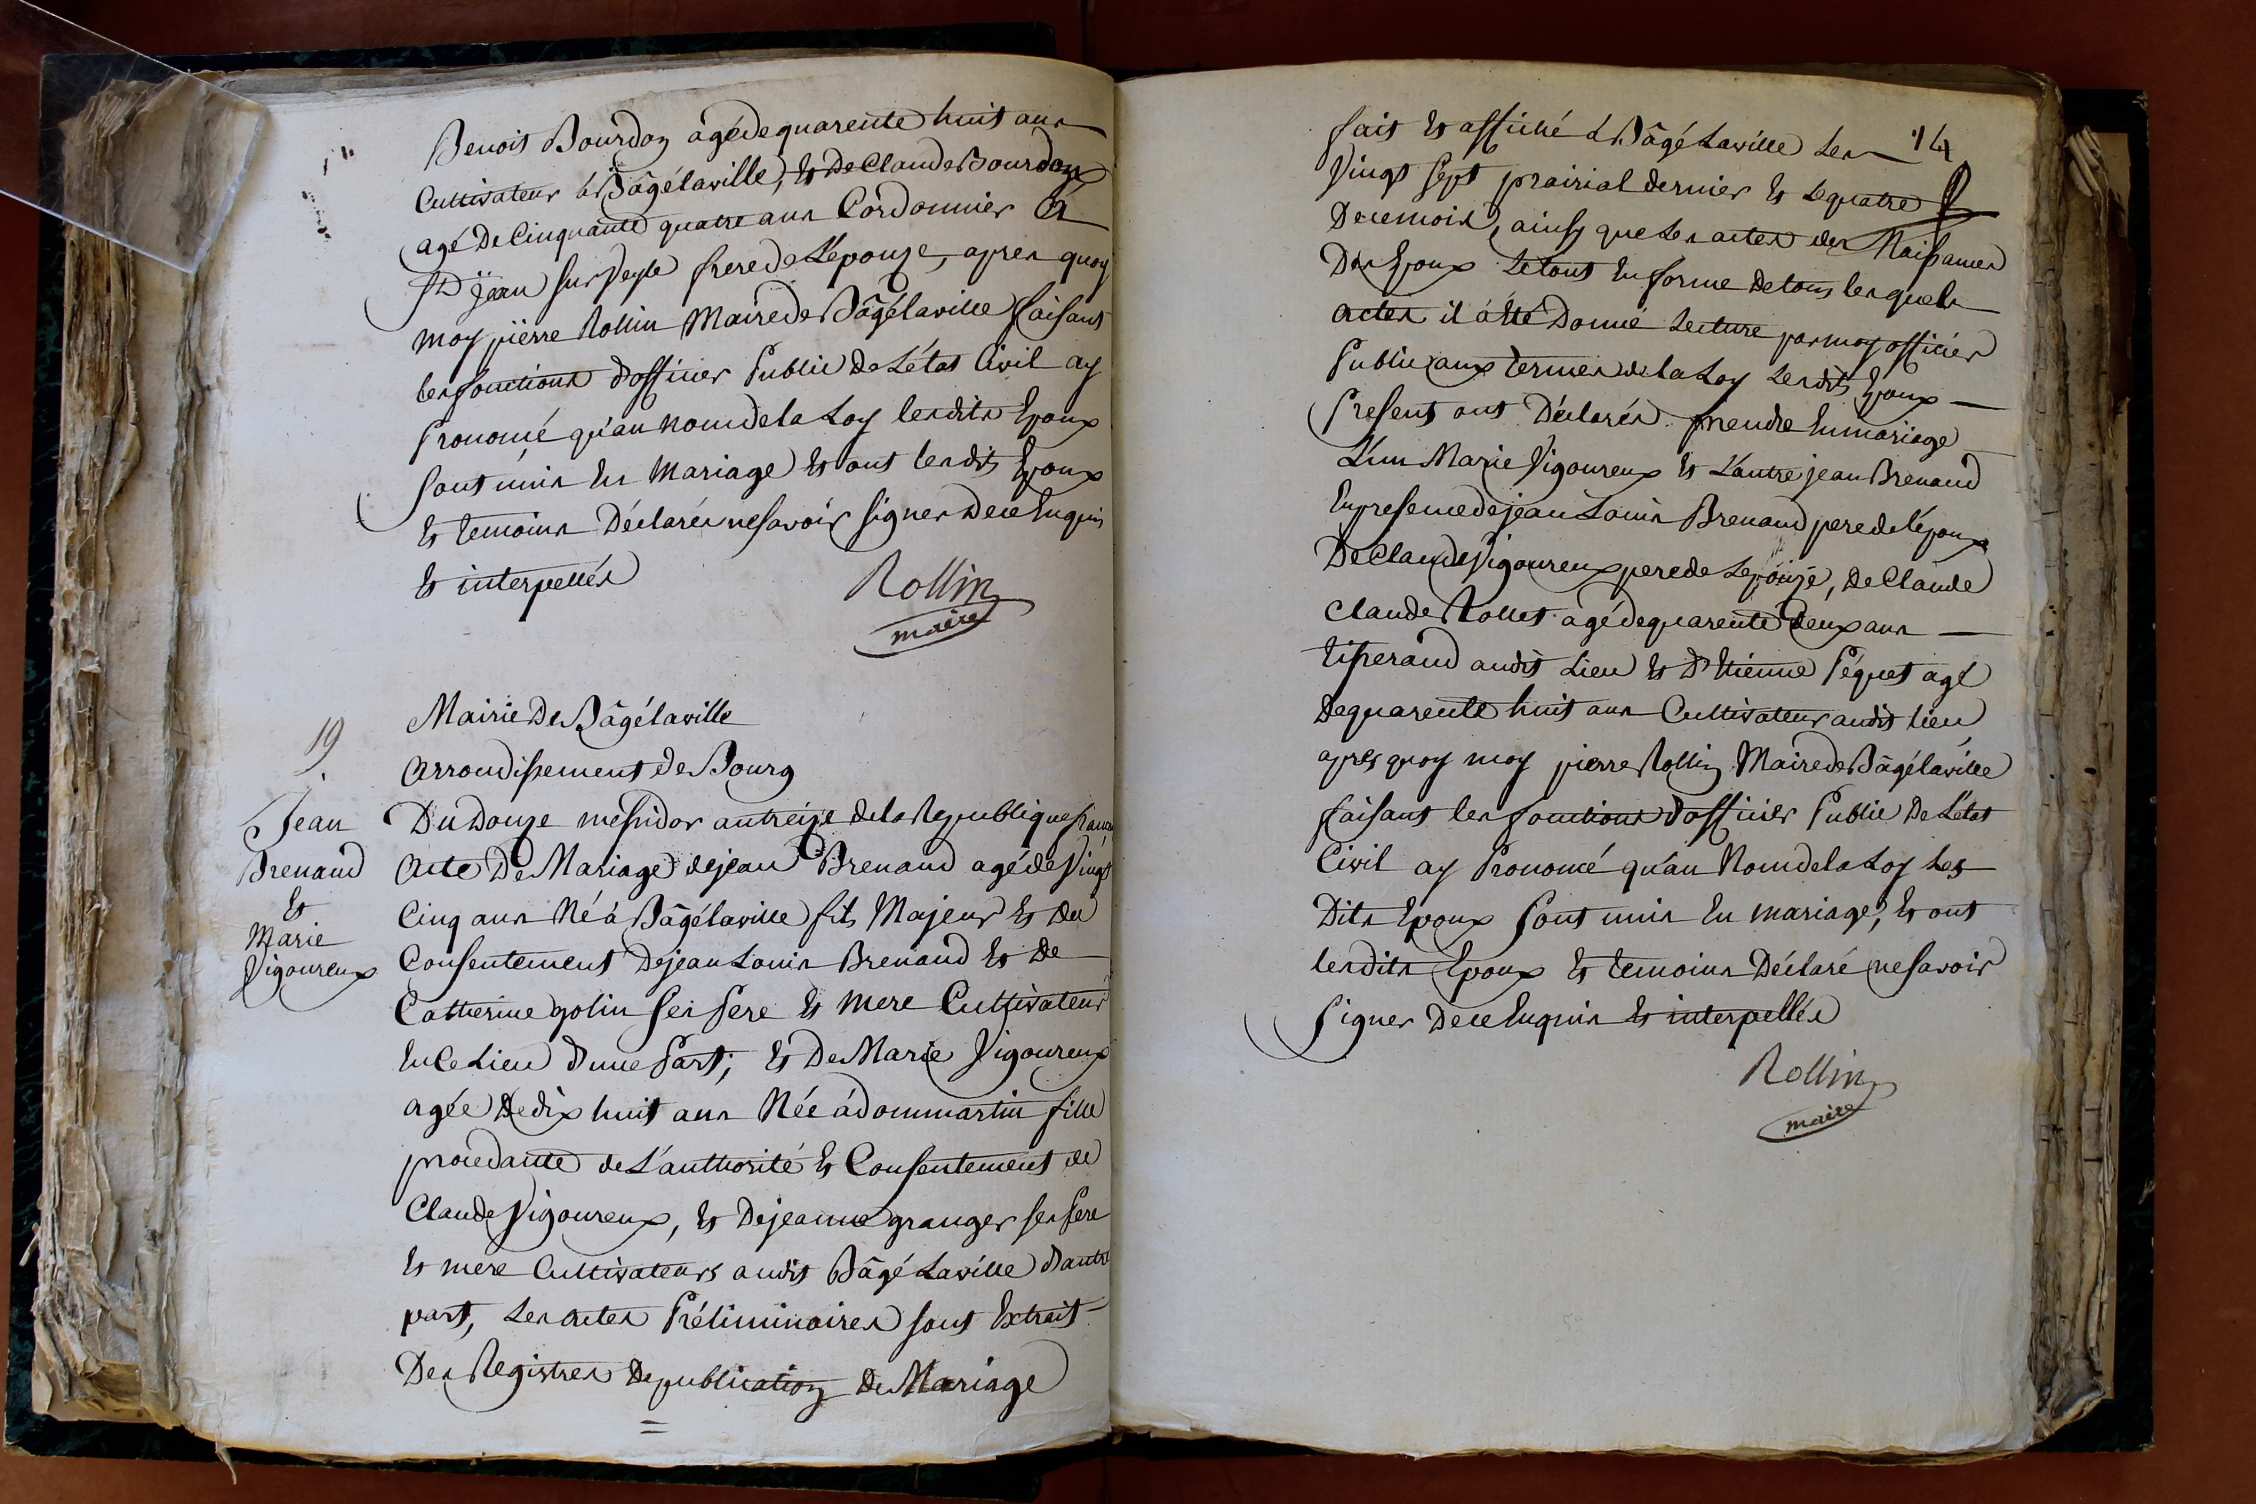 Benoit Bourdon agé de quarente huit ans
Cultivateur à Bâgélaville, et de Claude Bourdon
agé de Cinquante quatre ans Cordonnier a
St Jean sur Veyle frere de L'epouze, apres quoy
moy pierre Rollin Maire de Bâgélaville faisant
les fonctions d'officier Public de L'état Civil ay
Prononcé qu'au nom de la Loy lesdits Epoux
sont unis en Mariage et ont lesdits Epoux
et temoins Déclarés ne savoir signer de ce Enquis
et interpellés
Rollin
maire
19
Mairie de Bâgélaville
Arrondissement de Bourg
Jean
Brenaud
et
Marie
Vigoureux
Du Douze messidor an treize de la Republique
Acte De Mariage de jean Brenaud agé de Vingt
Cinq ans Né à Bâgélaville fils Majeur et du
Consentement De jean Louis Brenaud et de
Catherine golin ses Pere et mere Cultivateur
en Ce Lieu d'une Part, et de Marie Vigoureux
agée de dix huit ans Née à dommartin fille
procedante de L'authorité et Consentement de
Claude Vigoureux, et De jeanne granger ses Pere
et mere Cultivateurs audit Bâgé Laville d'autre
part, Les actes Préliminaires sont Extrait
Des Registres de publication de Mariage
14
fait et affiché à Bâgé Laville Les
Vingt Sept prairial dernier et le quatre
De ce mois, ainsy que Les actes des Naissances
Des Epoux Le tout en forme de tous lesquels
actes il a été Donné Lecture par moy officier
Public aux termes de la Loy Lesdits Epoux
Present ont Déclarés prendre en mariage
L'un Marie Vigoureux et L'autre jean Brenaud
En presence de jean Louis Brenaud pere de l'époux
De Claude Vigoureux pere de Lepouze, de Claude
Claude Rollet agé de quarente deux ans
tisserand audit Lieu et d'Etienne Péquet agé
De quarente huit ans Cultivateur audit lieu
apres quoy moy pierre Rollin Maire de Bâgélaville
faisant les fonctions d'officier Public De L'état
Civil ay Prononcé qu'au Nom de la Loy Les
Dits Epoux sont unis en mariage, et ont
lesdits Epoux et temoins Déclaré ne savoir
signer De ce Enquis et interpellés
Rollin
maire